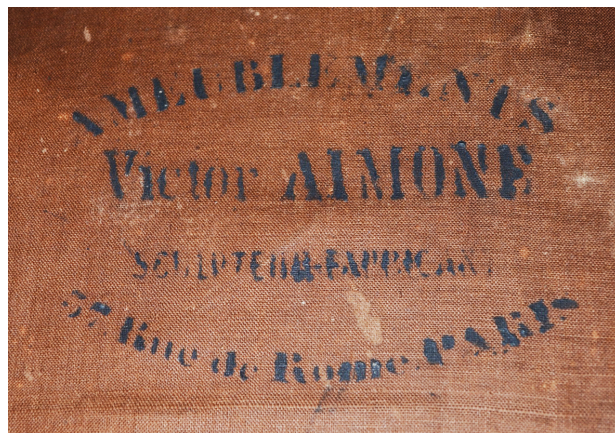 AMEUBLEMENTS
Victor AIMONE
SCULPTEUR-FABRICANT
Rue de Rome. PARIS